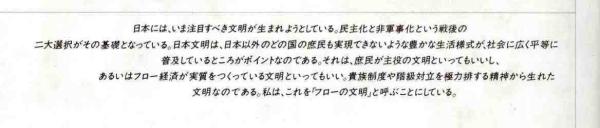 日本には、いま注目すべき文明が生まれようとしている。民主化と非軍事化という戦後の
二大選択がその基礎となっている。日本文明は、日本以外のどの国の庶民も実現できないような豊かな生活様式が、社会に広く平等に
普及しているところがポイントなのである。それは、庶民が主役の文明といってもいいし、
あるいはフロー経済が実質をつくっている文明といってもいい。貴族制度や階級対立を極力排する精神から生れた
文明なのである。私は、これを「フローの文明」と呼ぶことにしている。